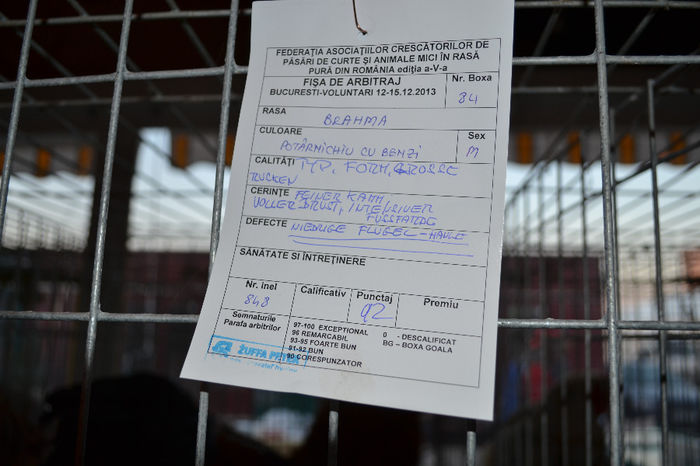 FEDERAȚIA ASOCIAȚIILOR CRESCĂTORILOR DE
PĂSĂRI DE CURTE ȘI ANIMALE MICI ÎN RASĂ
PURĂ DIN ROMÂNIA ediția a-V-a
FIȘA DE ARBITRAJ
BUCURESTI-VOLUNTARI 12-15.12.2013
Nr. Boxa
84
RASA
BRAHMA
CULOARE
POTÂRNICHIU CU BENZI
Sex
M
CALITĂȚI TYP, FORM, GROSSE
RUCKEN
CERINȚE FEINER KAMM,
VOLLER BRUST, INTENSIVER
DEFECTE NIEDRIGE FLUGEL-
SĂNĂTATE SI ÎNTREȚINERE
Nr. inel
848
Calificativ
Punctaj
92
Premiu
Semnaturile
Parafa arbitrilor
97-100 EXCEPTIONAL
96 REMARCABIL
93-95 FOARTE BUN
91-92 BUN
90 CORESPUNZATOR
0 - DESCALIFICAT
BG – BOXA GOALA
ZUFFA PETER